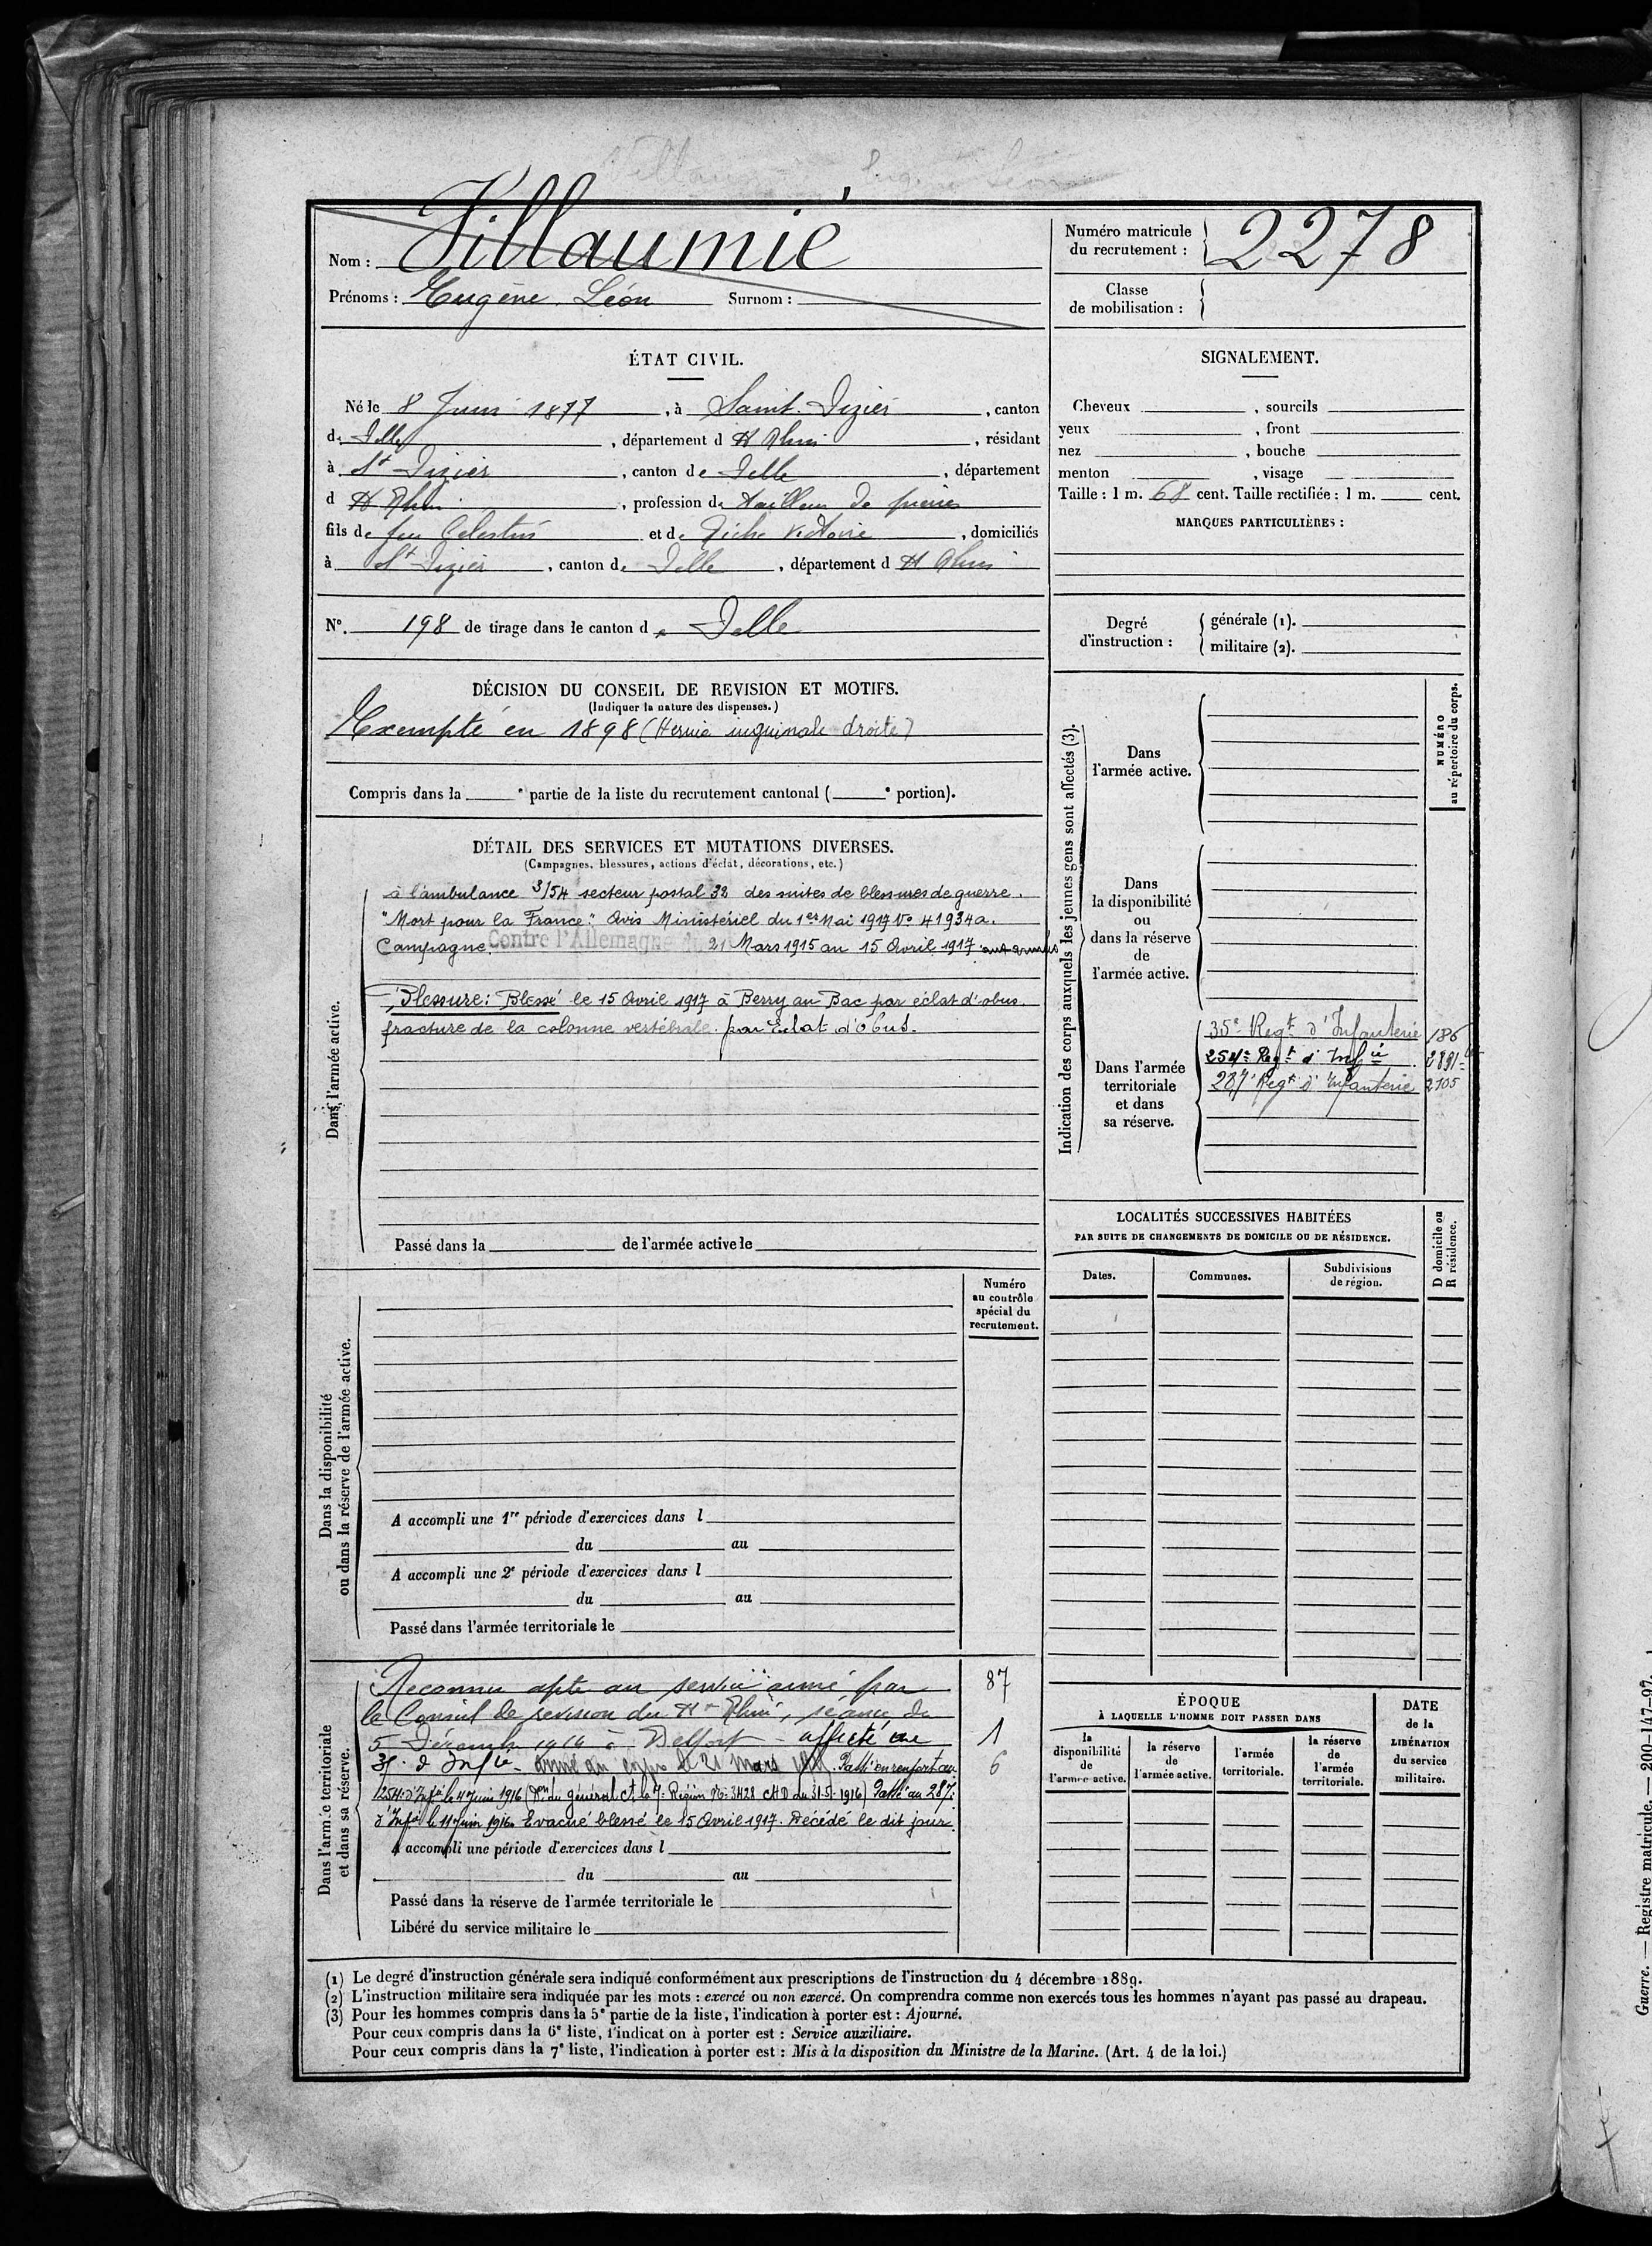 Nom : Villaumié
Prénoms : Eugène Léon Surnom :
Numéro matricule
du recrutement : 2278
Classe
de mobilisation :
ÉTAT CIVIL.
Né le 8 Juin 1877, à Saint-Dizier, canton
de Delle, département d Ht Rhin, résidant
à St Dizier, canton de Delle, département
d Ht Rhin, profession de tailleur de pierres
fils de feu Célestin et de Riche Victoire, domiciliés
à St Dizier, canton de Delle, département d Ht Rhin
N°. 198 de tirage dans le canton de Delle
SIGNALEMENT.
Cheveux , sourcils
yeux , front
nez , bouche
menton , visage
Taille : 1 m. 68 cent. Taille rectifiée : 1 m. cent.
MARQUES PARTICULIÈRES :
Degré
d'instruction :
générale (1).
militaire (2).
DÉCISION DU CONSEIL DE REVISION ET MOTIFS.
(Indiquer la nature des dispenses.)
Exempté en 1898 (Hernie inguinale droite)
Compris dans la e partie de la liste du recrutement cantonal ( e portion).
DÉTAIL DES SERVICES ET MUTATIONS DIVERSES.
(Campagnes, blessures, actions d'éclat, décorations, etc.)
Dans l'armée active.
à l'ambulance 3/54 secteur postal 32 des suites de blessures de guerre.
"Mort pour la France." Avis Ministériel du 1er Mai 1917 No 41934a.
Campagne. Contre l'Allemagne du 21 Mars 1915 au 15 Avril 1917 aux armées
Blessure : Blessé le 15 Avril 1917 à Berry au Bac par éclat d'obus.
fracture de la colonne vertébrale. par Éclat d'obus.
Passé dans la de l'armée active le
Indication des corps auxquels les jeunes gens sont affectés (3).
NUMÉRO
au répertoire du corps.
Dans
l'armée active.
Dans
la disponibilité
ou
dans la réserve
de
l'armée active.
Dans l'armée
territoriale
et dans
sa réserve.
35e Regt d'Infanterie 186
254e Regt d'Infie
287e Regt d'Infanterie 2105
LOCALITÉS SUCCESSIVES HABITÉES
PAR SUITE DE CHANGEMENTS DE DOMICILE OU DE RÉSIDENCE.
Dates.
Communes.
Subdivisions
de région.
D domicile ou
R résidence.
Dans la disponibilité
ou dans la réserve de l'armée active.
Numéro
au contrôle
spécial du
recrutement.
A accompli une 1re période d'exercices dans l
du au
A accompli une 2e période d'exercices dans l
du au
Passé dans l'armée territoriale le
Dans l'armée territoriale
et dans sa réserve.
Reconnu apte au service armé par 87
le Conseil de revision du Ht Rhin, séance du
5 Décembre 1914 à Belfort - affecté au 1
35e d'Infie - arrivé au corps le 21 Mars. Passé en renfort au 6
254e d'Infie le 4 Juin 1916 (Don du général Ct la 7e Région No 3428 CHD du 31-5-1916) Passé au 287e
d'Infie le 11 Juin 1916. Evacué blessé le 15 Avril 1917. Décédé le dit jour
A accompli une période d'exercices dans l
du au
Passé dans la réserve de l'armée territoriale le
Libéré du service militaire le
ÉPOQUE
À LAQUELLE L'HOMME DOIT PASSER DANS
la
disponibilité
de
l'armée active.
la réserve
de
l'armée active.
l'armée
territoriale.
la réserve
de
l'armée
territoriale.
DATE
de la
LIBÉRATION
du service
militaire.
(1) Le degré d'instruction générale sera indiqué conformément aux prescriptions de l'instruction du 4 décembre 1889.
(2) L'instruction militaire sera indiquée par les mots : exercé ou non exercé. On comprendra comme non exercés tous les hommes n'ayant pas passé au drapeau.
(3) Pour les hommes compris dans la 5e partie de la liste, l'indication à porter est : Ajourné.
Pour ceux compris dans la 6e liste, l'indication à porter est : Service auxiliaire.
Pour ceux compris dans la 7e liste, l'indication à porter est : Mis à la disposition du Ministre de la Marine. (Art. 4 de la loi.)
Guerre. — Registre matricule. — 200-147-97.